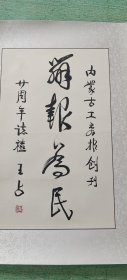 内蒙古工商报创刊
办报为民
廿周年志禧 王占